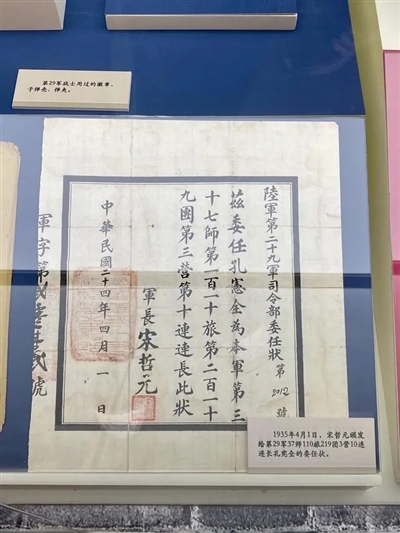 第29军战士用过的徽章、
子弹壳、弹夹。
陸軍第二十九軍司令部委任狀第2012號
茲委任孔憲全為本軍第三
十七師第一百一十旅第二百一十
九團第三營第十連連長此狀
軍長宋哲元
中華民國二十四年四月一日
軍字第貳零壹貳號
1935年4月1日，宋哲元颁发
给第29军37师110旅219团3营10连
连长孔宪全的委任状。